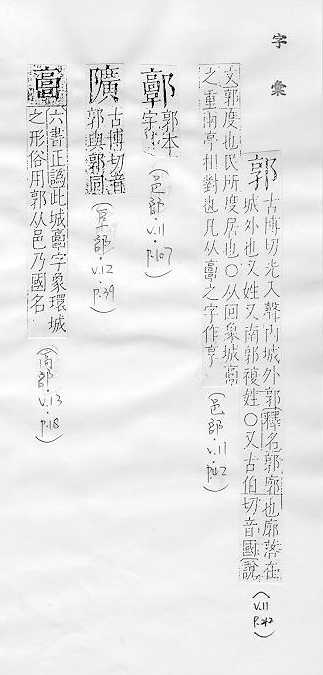 字彙
郭
古博切光入聲內城外郭釋名郭廓也廓落在
城外也又姓又南郭複姓○又古伯切音國說
(v.11 p.42)
文郭度也民所度居也○从回象城𩫖
之重兩亭相對也凡从𩫖之字作享
(邑部·v.11 p.42)
郭本
字
(邑部·v.11 p.107)
古博切音
郭與郭同
(阜部·v.12 p.39)
六書正譌此城𩫖字象環城
之形俗用郭从邑乃國名
(v.13 p.18)